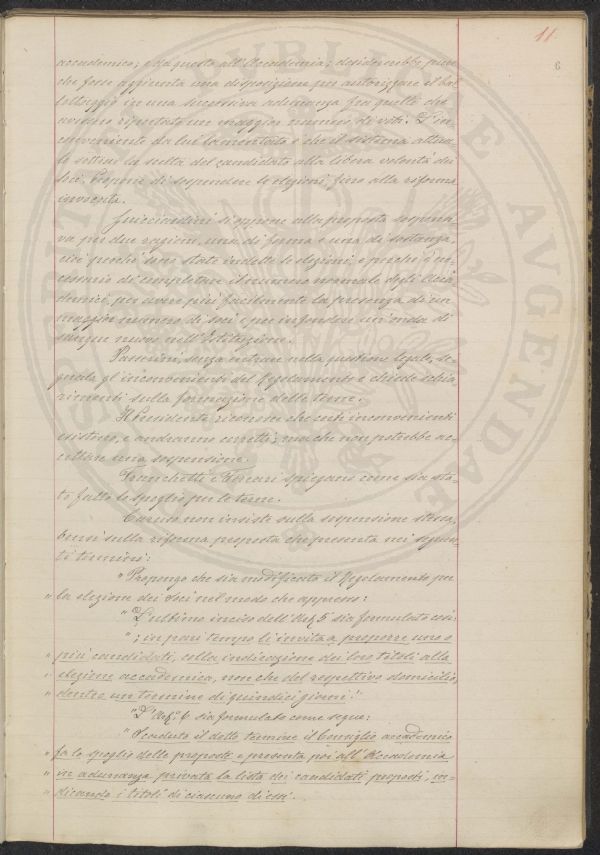 11
6
accademico; e da questo all'Accademia; desidererebbe pure
che fosse aggiunta una disposizione per autorizzare il bal
lottaggio in una successiva adunanza fra quelli che
avranno riportato un maggior numero di voti. L'in
conveniente da lui lamentato è che il sistema attua
le sottrae la scelta del candidato alla libera volontà dei
Soci. Propone di sospendere le elezioni fino alla riforma
invocata.
Guicciardini si oppone alla proposta sospensi
va per due ragioni, una di forma e una di sostanza,
cioè perchè sono state indette le elezioni, e perchè è ne
cessario di completare il numero normale degli Acca
demici, per avere più facilmente la presenza di un
maggior numero di soci e per infondere un'onda di
sangue nuovo nell'Istituzione.
Passerini, senza entrare nella questione legale, se
gnala gl'inconvenienti del Regolamento e chiede schia
rimenti sulla formazione delle terne.
Il Presidente riconosce che certi inconvenienti
esistono, e andranno corretti; ma che non potrebbe ac
cettare una sospensione.
Franchetti e Ferrari spiegano come sia sta
to fatto lo spoglio per le terne.
Caruso non insiste sulla sospensione stessa,
bensì sulla riforma proposta che presenta nei seguen
ti termini:
"Propongo che sia modificato il Regolamento per
" la elezione dei Soci nel modo che appresso:
"L'ultimo inciso dell'Art. 5 sia formulato così:
"; in pari tempo li invita a proporre uno o
" più candidati, colla indicazione dei loro titoli alla
" elezione accademica, non che del respettivo domicilio,
" dentro un termine di quindici giorni."
"L'Art. 6 sia formulato come segue:
"Scaduto il detto termine il Consiglio accademico
fa lo spoglio delle proposte e presenta poi all'Accademia
" in adunanza privata la lista dei candidati proposti, in-
" dicando i titoli di ciascuno di essi.
PROSPERITATI PVBLICAE AVGENDAE